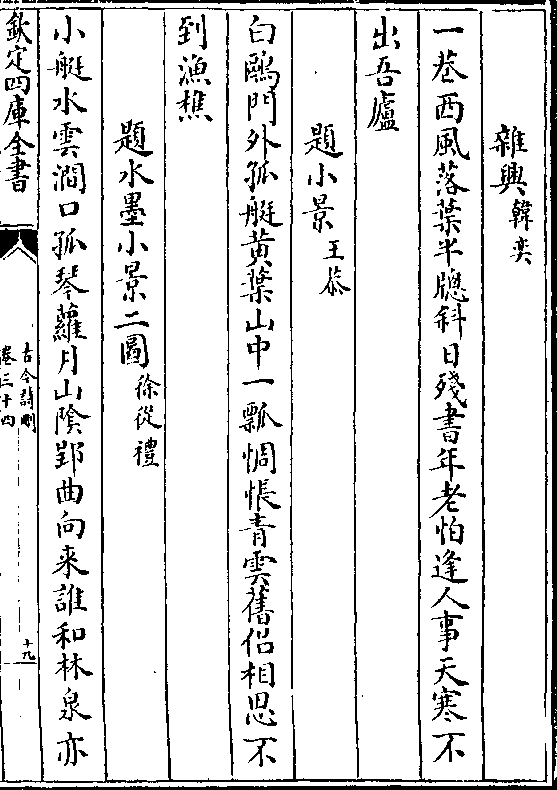 雜興韓奕
一巷西風落葉半牎斜日殘書年老怕逢人事天寒不
出吾廬
題小景王恭
白鷗門外孤艇黄葉山中一瓢惆悵青雲舊侣相思不
到漁樵
題水墨小景二圖徐從禮
小艇水雲澗口孤琴蘿月山隂郢曲向来誰和林泉亦
欽定四庫全書
古今詩刪
卷三十四
十九